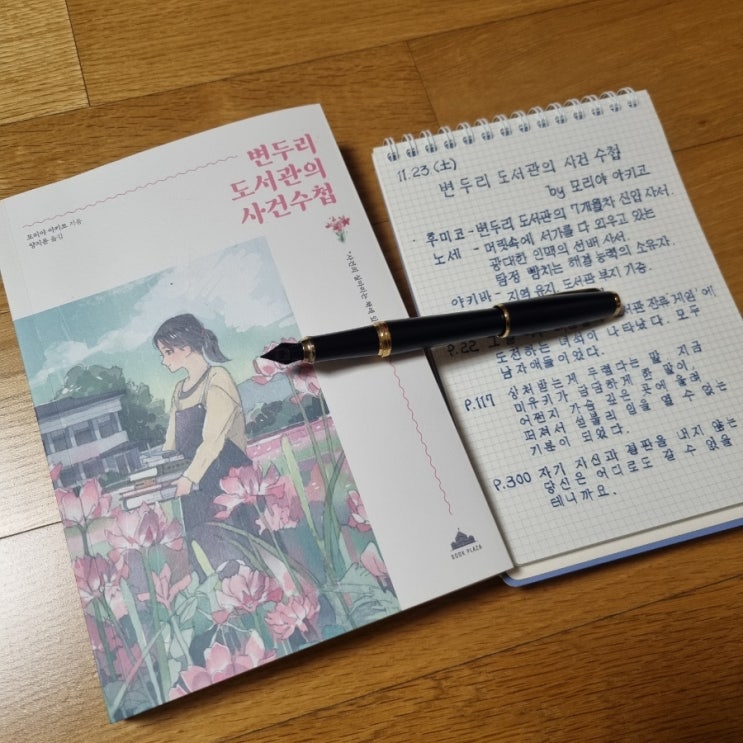 변두리
도서관의
사건수첩
모리야 아키코 지음
양지윤 옮김
BOOK PLAZA
11.23(土)
변두리 도서관의 사건 수첩
by 모리야 아키고
· 후미코 - 변두리 도서관의 7개월차 신입 사서.
노세 - 머릿속에 서가를 다 외우고 있는
광대한 인맥의 선배 사서.
탐정 뺨치는 해결 능력의 소유자.
야키바 - 지역 유지, 도서관 부지 기증.
P.22
도전하는 녀석이 나타났다. 모두
남자애들이었다.
P.117 상처받는게 두렵다는 말, 지금
미유키가 급급하게 한 말이,
어쩐지 가슴 깊은 곳에 울려
퍼져서 섣불리 입을 열 수 없는
기분이 되었다.
P.300 자기 자신과 결판을 내지 않는
당신은 어디로도 갈 수 없을
테니까요.